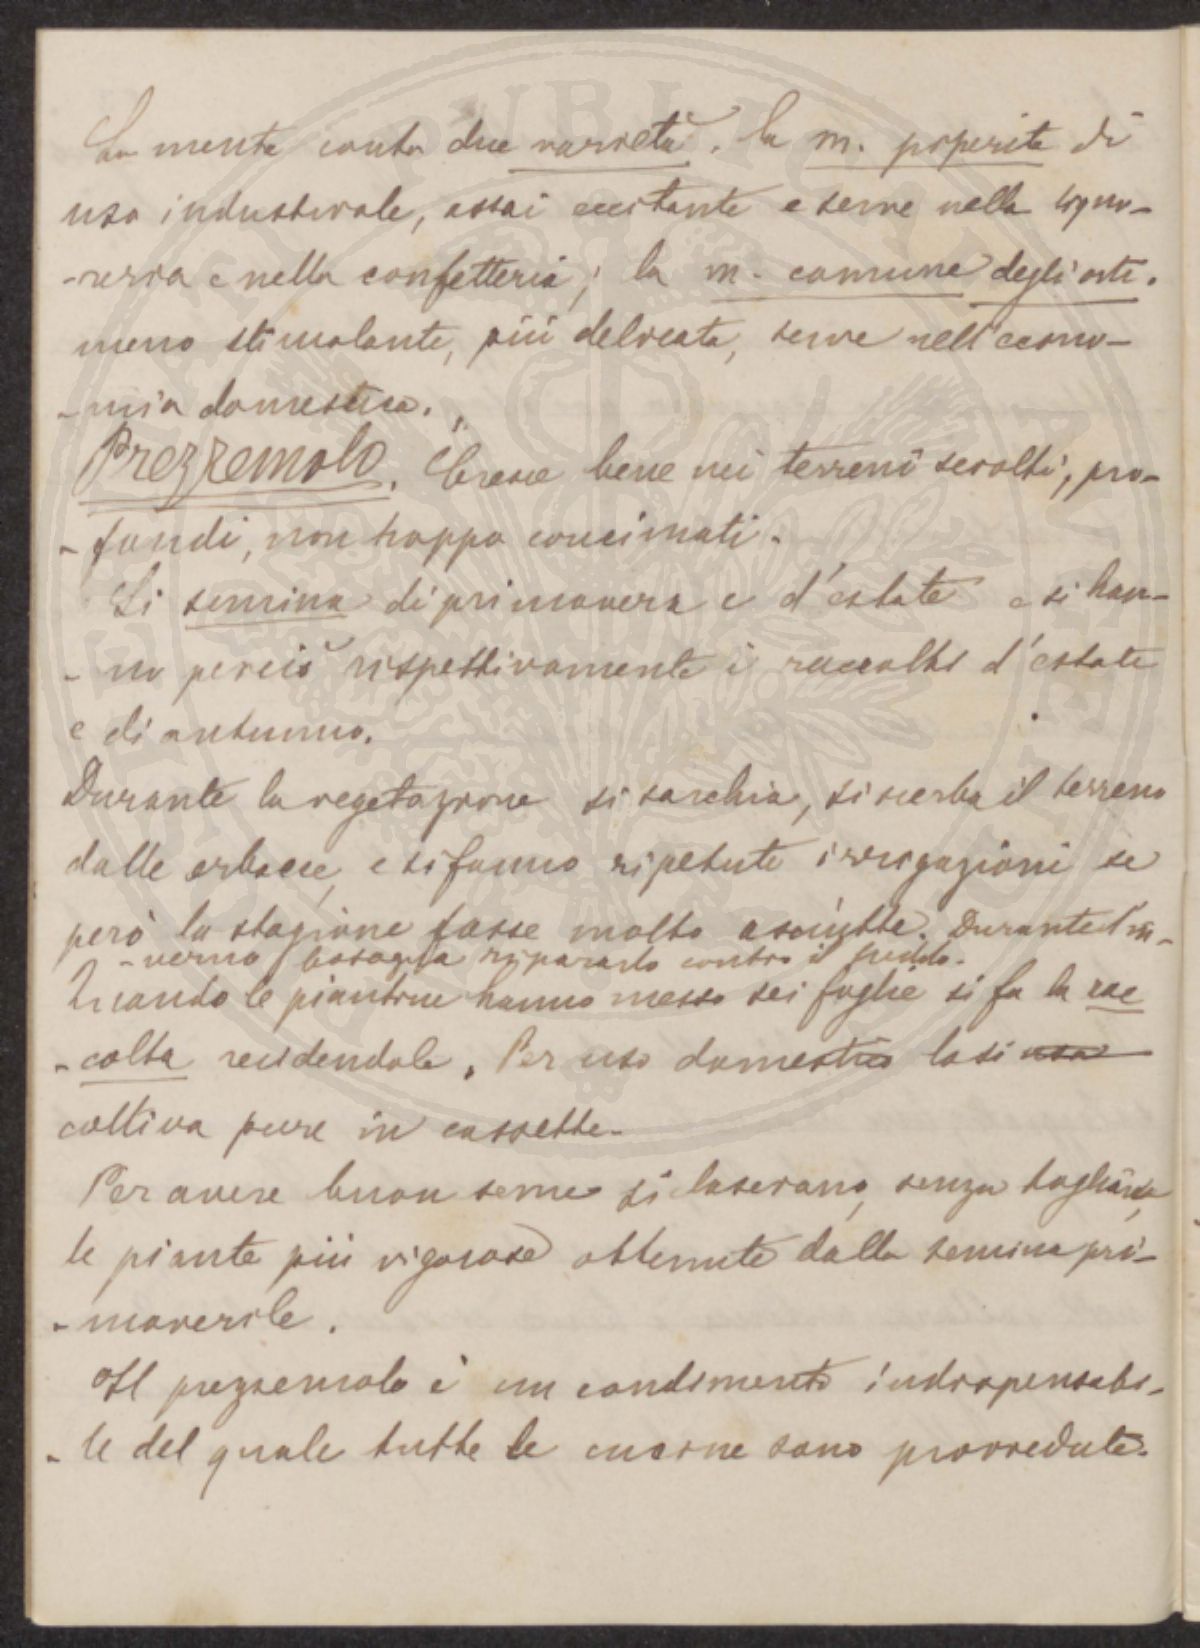 La menta conta due varietà. la m. piperita di
uso industriale, assai eccitante e serve nella liquo-
-reria e nella confetteria; la m. comune degli orti.
meno stimolante, più delicata, serve nell'econo-
-mia domestica.
Prezzemolo. Cresce bene nei terreni sciolti, pro-
-fondi, non troppo concimati.
Si semina di primavera e d'estate e si han-
-no perciò rispettivamente i raccolti d'estate
e di autunno.
Durante la vegetazione si sarchia, si scerba il terreno
dalle erbacce, e si fanno ripetute irrigazioni se
però la stagione fosse molto asciutta. Durante l'in-
-verno bisogna ripararlo contro il freddo.
Quando le piantine hanno messo sei foglie si fa la rac
-colta recidendole. Per uso domestico lo si usa
coltiva pure in cassette.
Per avere buon seme si lasciano, senza tagliare,
le piante più vigorose ottenute dalla semina pri-
-maverile.
Il prezzemolo è un condimento indispensabi-
-le del quale tutte le cucine sono provvedute.